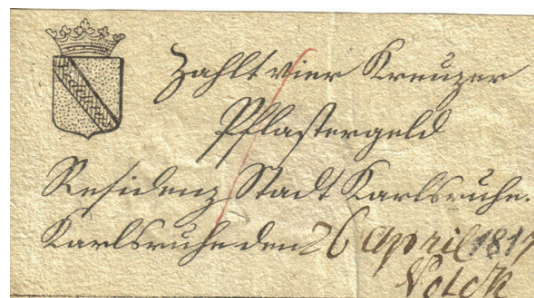 Zahlt vier Kreuzer
Pflastergeld
Residenz Stadt Karlsruhe.
Karlsruhe den 26 April 1817